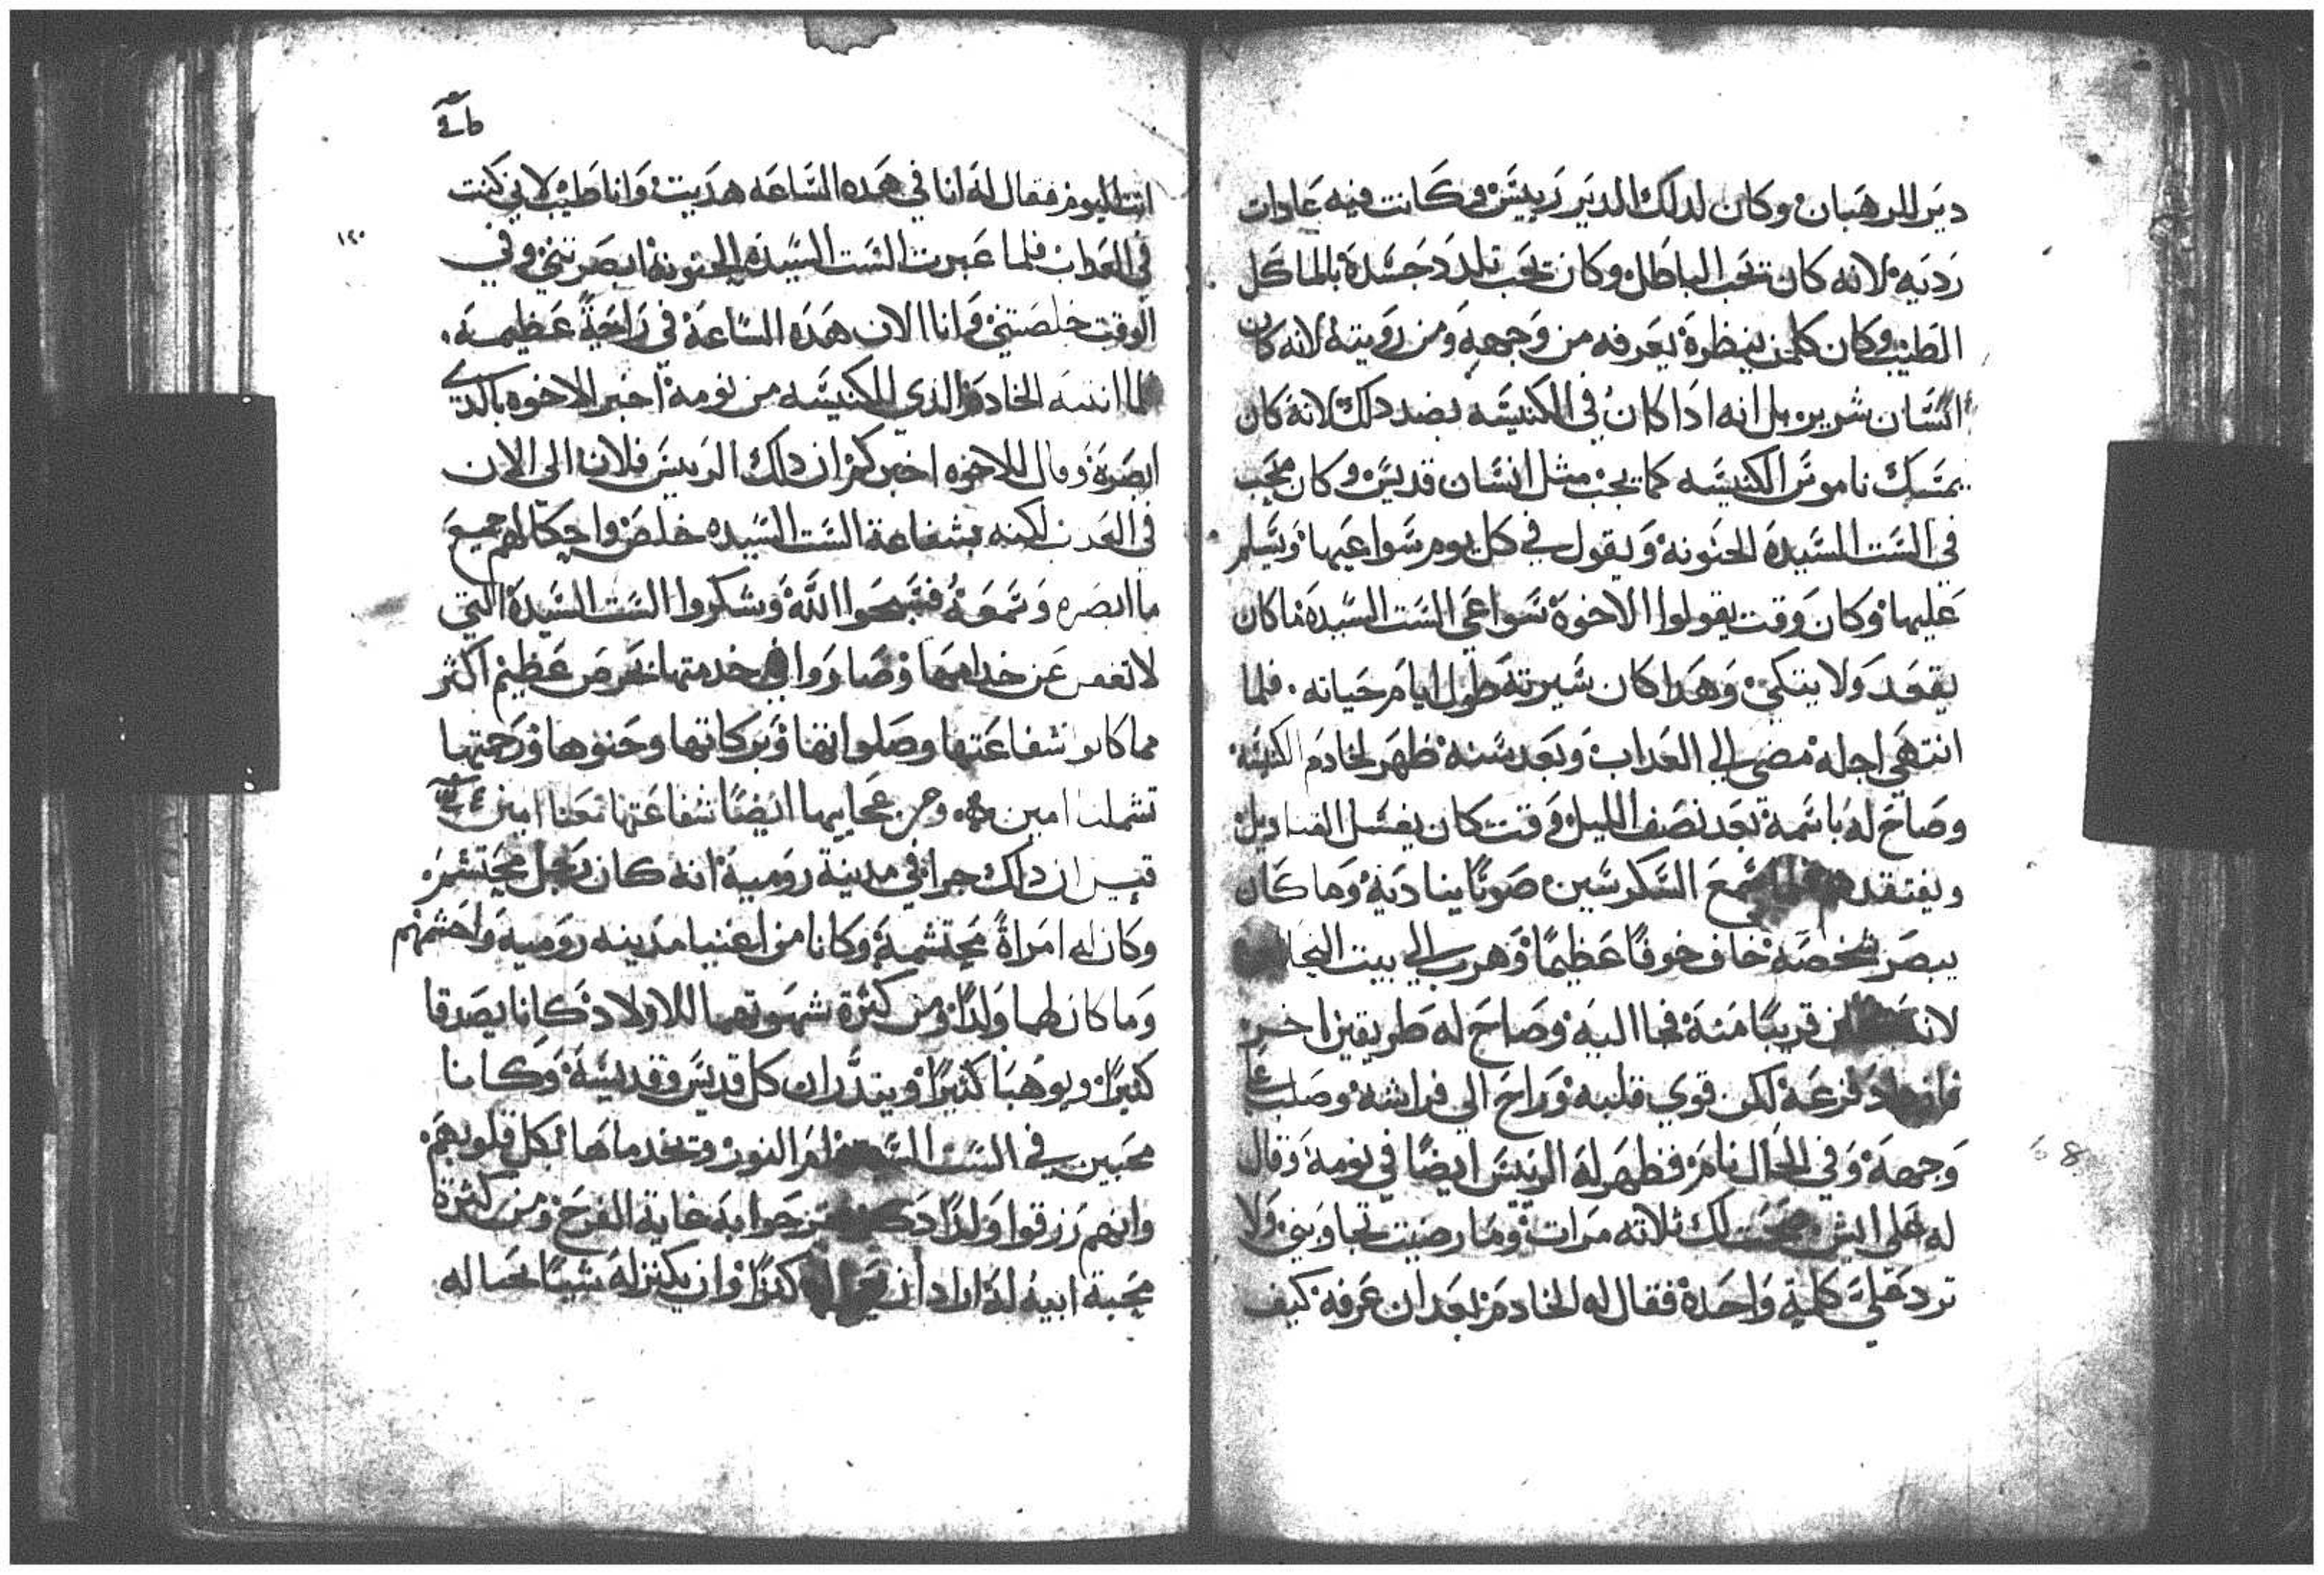 دير الرهبان وكان لدلك الدير رييس وكانت فيه عادات
رديه لانه كان يحب الباطل وكان يحب تلدد جسده بالماكل
الطيب وكان كلمن ينظره يعرفه من وجهه ومن رويته لانه كان
انسان شرير بل انه ادا كان في الكنيسه بضد دلك لانه كان
يمسك ناموس الكنيسه كما يجب مثل انسان قديس وكان محب
في الست السيده الحنونه ويقول في كل يوم سواعيها ويسلم
عليها وكان وقت يقولوا الاخوه سواعي الست السيده ماكان
يقعد ولا يتكي وهدا كان سيرته طول ايام حياته . فلما
انتهي اجله مضي الي العداب وبعد سنه ظهر لخادم الكنيسه
وصاح له باسمه بعد نصف الليل وقت كان يغسل القناديل
ويفتقدهم فلما سمع السكرستين صوتا يناديه وما كان
يبصر شخصه خاف خوفا عظيما وهرب الي بيت النجا
لانه قريبا منه فجا اليه وصاح له طريقين اخر
فزعه لكن قوي قلبه وراح الي فراشه وصلب علي
وجهه وفي الحال نام فظهر له الرييس ايضا في نومه وقال
له علي ايش صحت لك ثلاثه مرات وما رضيت تجاوبني ولا
ترد علي كلمة واحده فقال له الخادم بعد ان عرفه كيف
انت اليوم فقال له انا في هده الساعه هديت وانا طيب لاني كنت
١٢٠
في العداب فلما عبرت الست السيده الحنونه ابصرتني وفي
الوقت خلصتني وانا الان هده الساعة في راحة عظيمه .
فلما انتبه الخادم الدي للكنيسه من نومه اخبر الاخوه بالدي
ابصره وقال للاخوه اخبركم ان دلك الرييس فلان الي الان
في العداب لكنه بشفاعة الست السيده خلص واحكا لهم جميع
ما ابصره وسمعه فسبحوا الله وشكروا الست السيدة التي
لا تغفل عن خدامها وصاروا في خدمتها بحرص عظيم اكثر
مما كانوا شفاعتها وصلواتها وبركاتها وحنوها ورحمتها
تشملنا امين ومن عجايبها ايضا شفاعتها معنا امين
قيل ان داك جرا في مدينة روميه انه كان رجل محتشم
وكان له امراة محتشمة وكانا من اغنيا مدينه روميه واحشمهم
وما كان لهما ولدا ومن كثرة شهوتهما للاولاد كانا يصدقا
كثيرا ويوهبا كثيرا ويتدران كل قديس وقديسة وكانا
محبين في الست ام النور وتخدماها بكل قلوبهم
وانهم رزقوا ولدا دكر فرحوا به غاية الفرح ومن كثرة
محبة ابيه له اراد ان كنزا وان يكنز له شيا بحاله